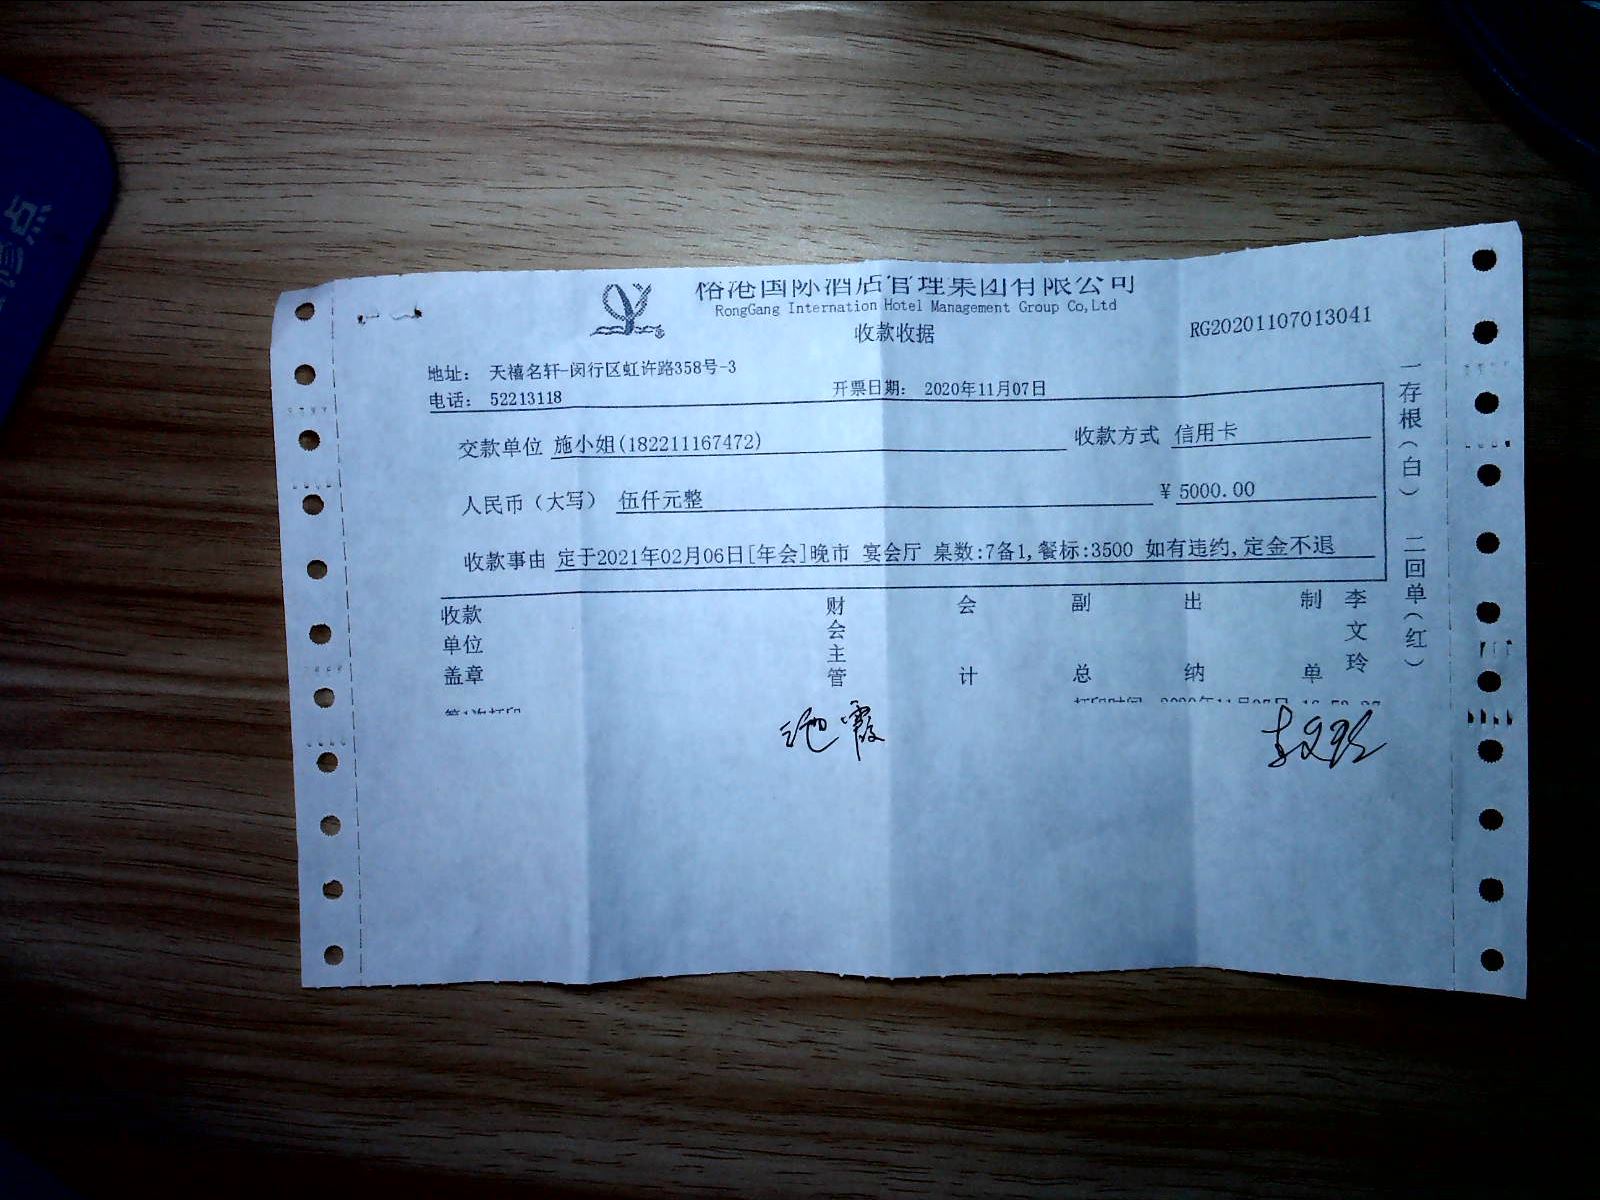 榕港国际酒店管理集团有限公司
RongGang Internation Hotel Management Group Co,Ltd
收款收据
RG20201107013041
地址： 天禧名轩-闵行区虹许路358号-3
电话： 52213118
开票日期： 2020年11月07日
交款单位 施小姐(182211167472) 收款方式 信用卡
人民币（大写） 伍仟元整 ¥ 5000.00
收款事由 定于2021年02月06日[年会]晚市 宴会厅 桌数:7备1,餐标:3500 如有违约,定金不退
收款单位盖章 财会主管 会计 副总 出纳 制单 李文玲
第1次打印 打印时间 2020年11月07日
池霞 李文玲
一存根（白） 二回单（红）
修点